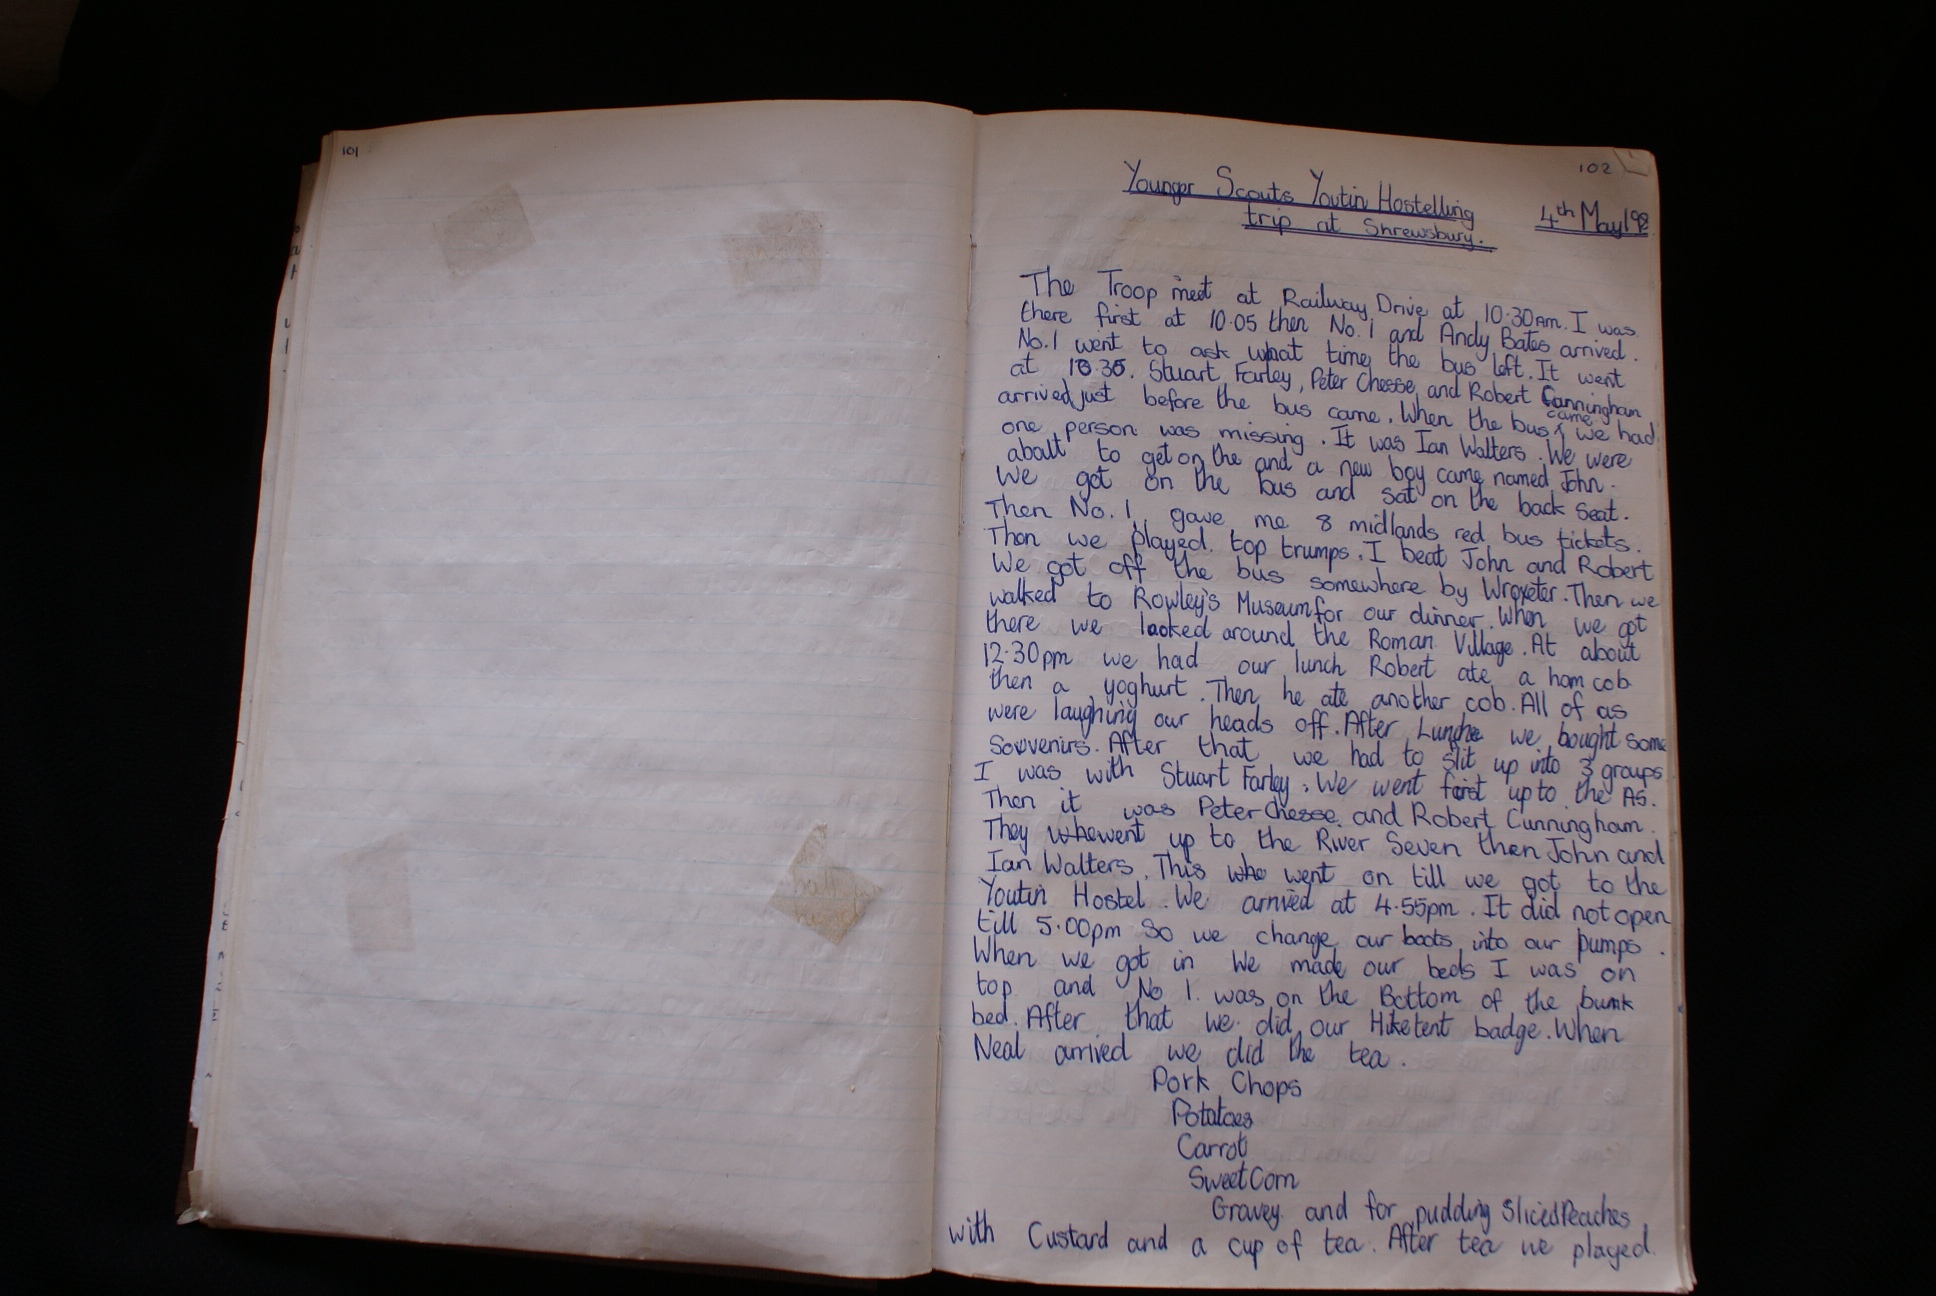 101
102
Younger Scouts Youtin Hostelling
trip at Shrewsbury.
4th May 198
The Troop meet at Railway Drive at 10.30am. I was
there first at 10.05 then No.1 and Andy Bates arrived.
No.1 went to ask what time the bus left. It went
at 10.35. Stuart Farley, Peter Chesse, and Robert Cunningham
arrived just before the bus came. When the bus came we had
one person was missing. It was Ian Walters. We were
about to get on the and a new boy came named John.
We got on the bus and sat on the back seat.
Then No. 1 gave me 8 midlands red bus tickets.
Then we played top trumps. I beat John and Robert
We got off the bus somewhere by Wroxeter. Then we
walked to Rowley's Museum for our dinner. When we got
there we looked around the Roman Village. At about
12.30pm we had our lunch Robert ate a ham cob
then a yoghurt. Then he ate another cob. All of as
were laughing our heads off. After Lunche we bought some
Souvenirs. After that we had to slit up into 3 groups
I was with Stuart Farley. We went first up to the A5.
Then it was Peter Chesse and Robert Cunningham.
They whewent up to the River Seven then John and
Ian Walters. This who went on till we got to the
Youtin Hostel. We arrived at 4.55pm. It did not open
till 5.00pm So we change our boots into our pumps.
When we got in We made our beds I was on
top and No 1. was on the Bottom of the bunk
bed. After that we did our Hike tent badge. When
Neal arrived we did the tea.
Pork Chops
Potatoes
Carrot
SweetCorn
Gravey and for pudding Sliced Peaches
with Custard and a cup of tea. After tea we played